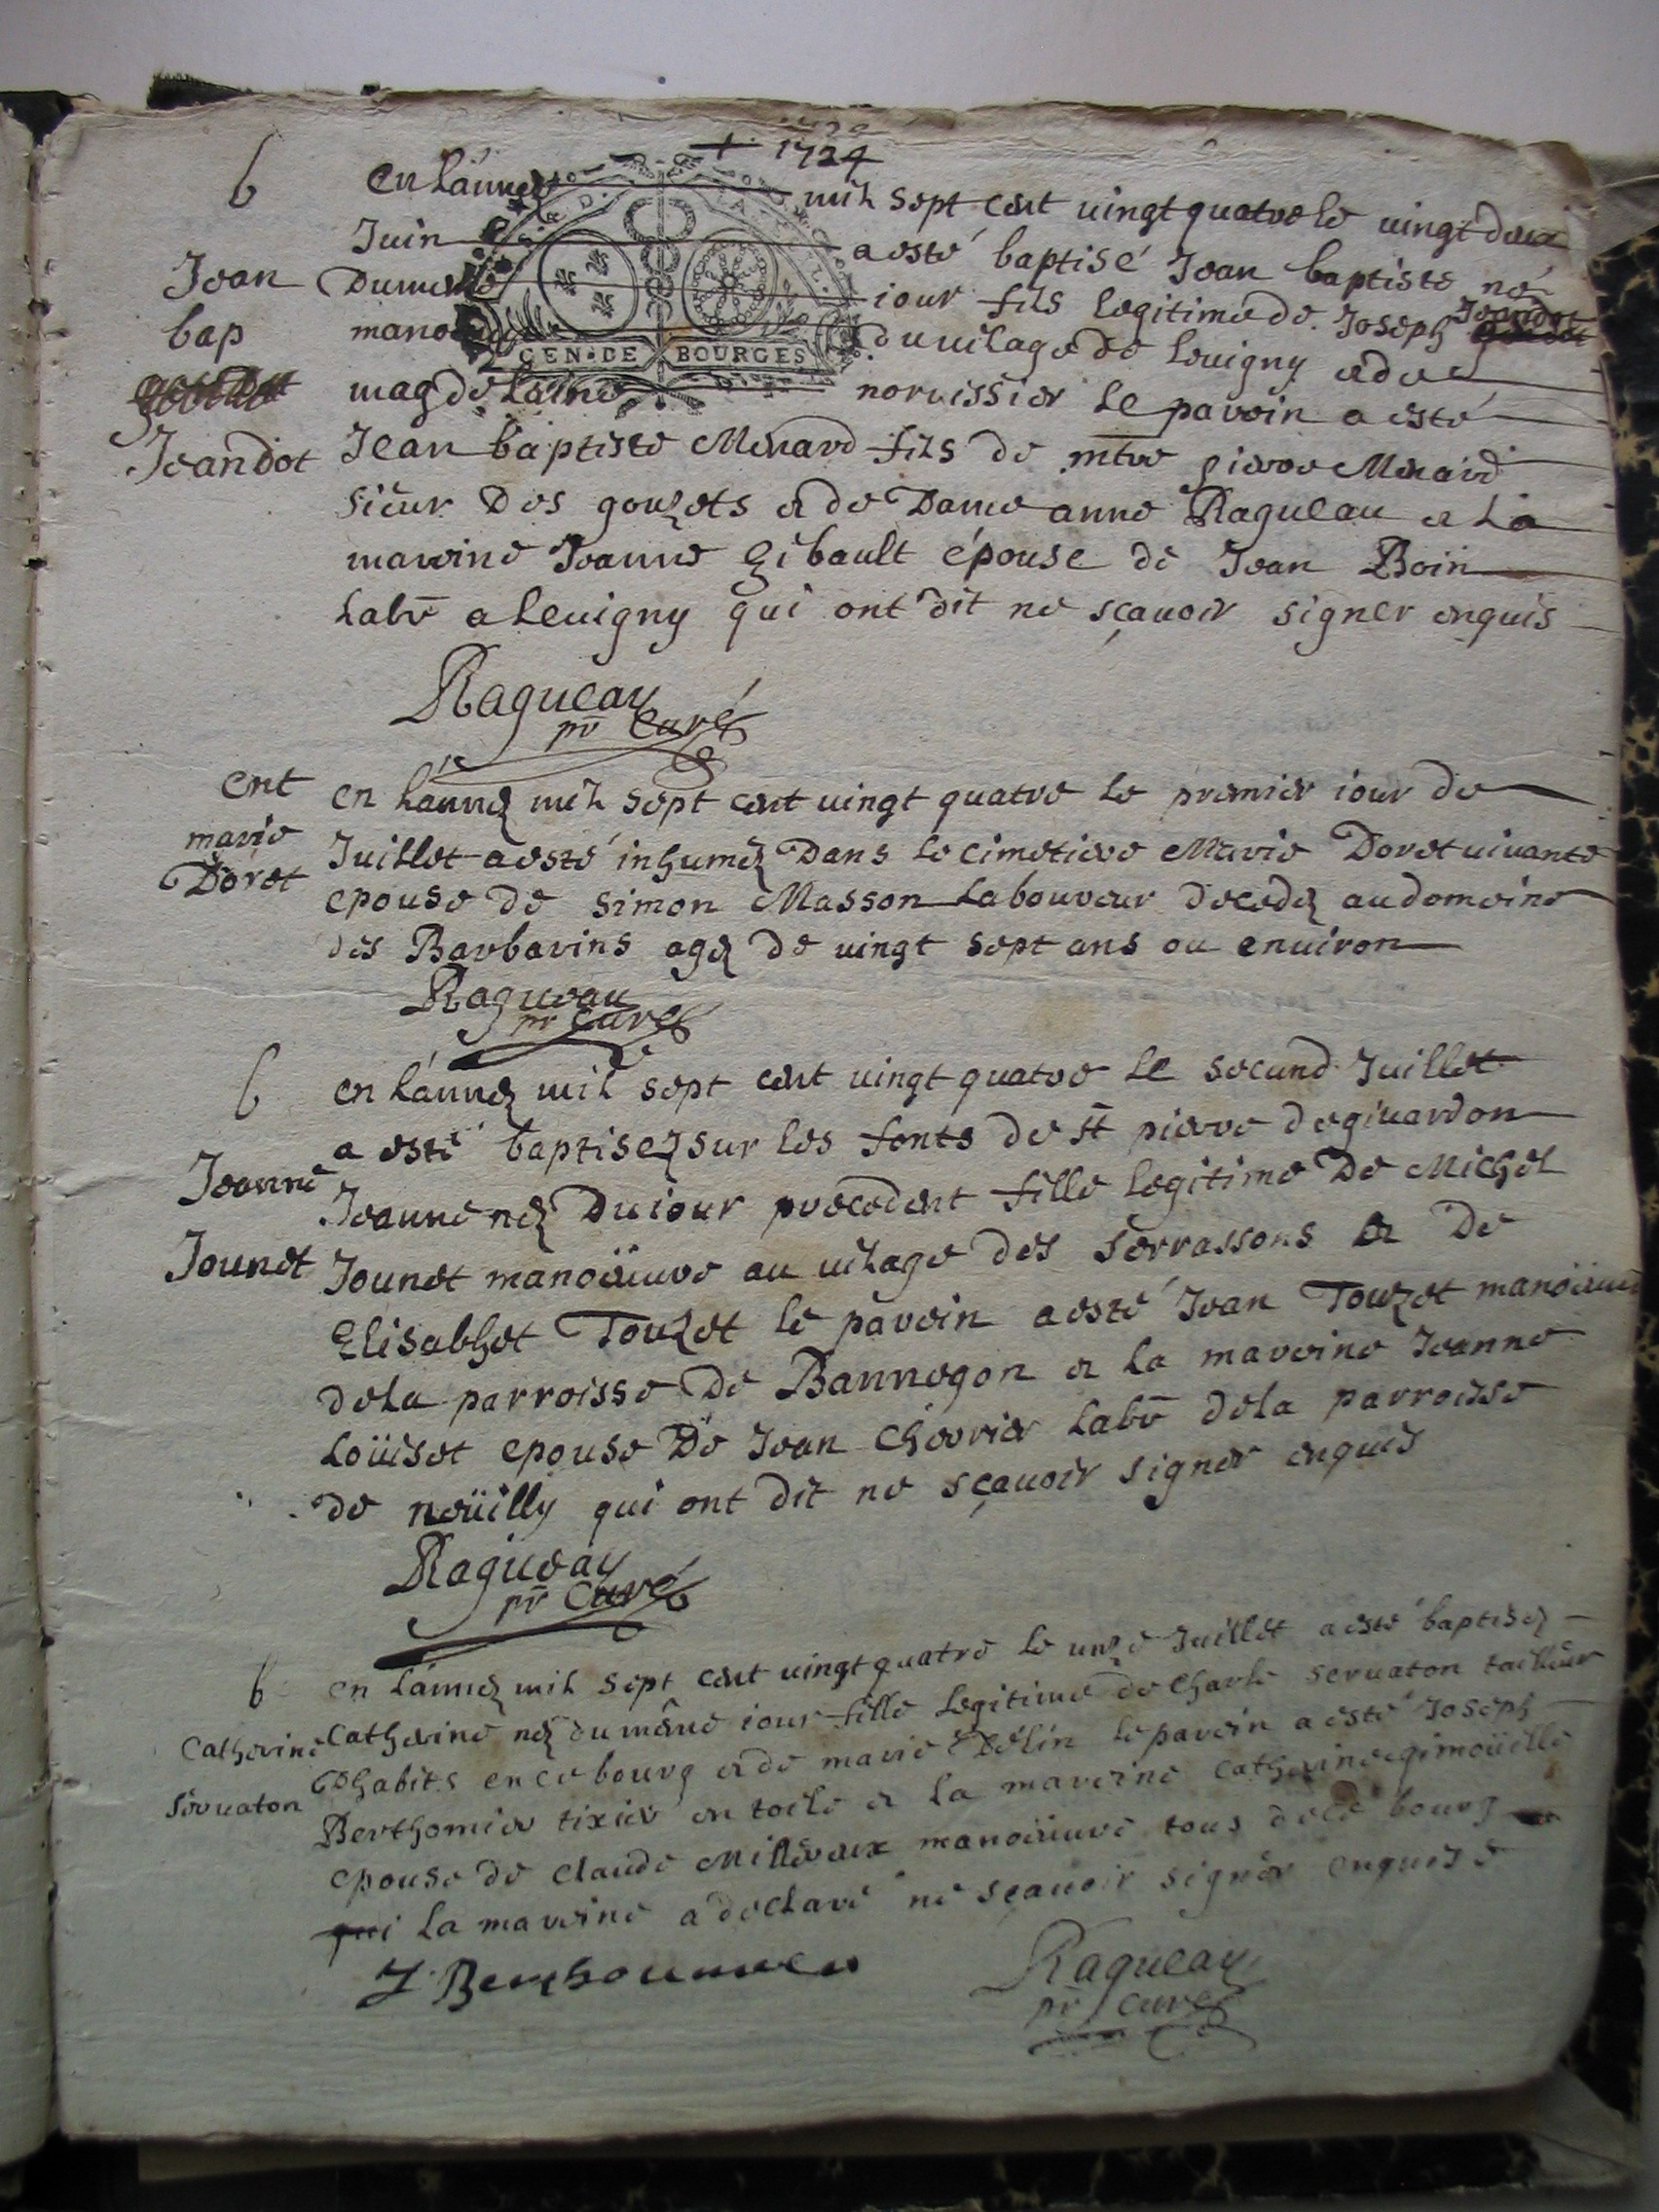 1724
b
en l'année mil sept cent vingt quatre le vingt deux
Juin a esté baptisé Jean baptiste né
Jean
Du mesme iour fils legitime de Joseph Jeandot
bap
manoeuvre du vilage de Leuigny et de
GEN. DE BOURGES
magdelaine norissier Le parein a esté
Jeandot
Jean baptiste Menard fils de mtre pierre Menard
sieur Des gouzets et de Dame anne Ragueau et La
mareine Jeanne Gibault épouse de Jean Boin
Labr a Leuigny qui ont dit ne sçauoir signer enquis
Ragueau
pr Curé
ent
marie
Doret
en L'année mil sept cent uingt quatre le premier iour de
Juillet a esté inhumée Dans le cimetiere Marie Doret uiuante
epouse de simon Masson Laboureur decedée au domeine
des Barbarins agée de uingt sept ans ou enuiron
Ragueau
pr Curé
b
Jeanne
Jounet
en L'année mil sept cent uingt quatre le second Juillet
a esté baptisée sur les fonts de st pierre de giuardon
Jeanne née Du iour precedent fille legitime De Michel
Jounet manoeuure au uilage des serrassons et De
Elisabhet Touzet le parein a esté Jean Touzet manoeuure
de la parroisse De Bannegon et la mareine Jeanne
Loüiset epouse De Jean Chevrier Labr de la parroisse
de neüilly qui ont dit ne sçauoir signer enquis
Ragueau
pr Curé
b
Catherine
seruaton
en L'année mil sept cent uingt quatre le unze Juillet a esté baptisée
Catherine née du même iour fille legitime de Charle seruaton tailleur
D'habits en ce bourg et de marie Délin le parein a esté Joseph
Berthomier tixier en toile et la mareine Catherine gimoüille
epouse de Claude Millereux manoeuure tous de ce bourg
qui la mareine a declaré ne sçauoir signer enquise
J Berthoumier
Ragueau
pr curé